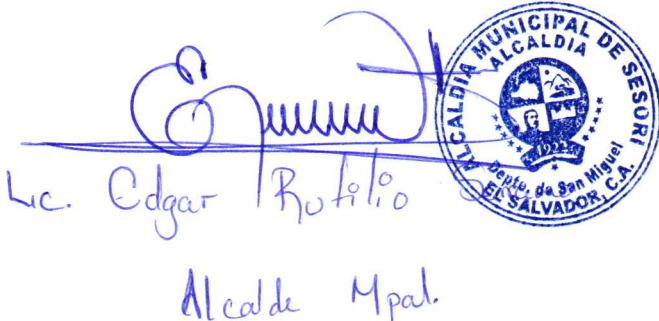 ALCALDIA MUNICIPAL DE SESORI
ALCALDIA
Depto. de San Miguel
EL SALVADOR, C.A.
Lic. Edgar Rutilio
Alcalde Mpal.